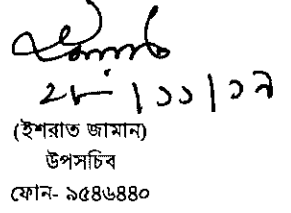 ২৮|১১|১৭
(ইশরাত জামান)
উপসচিব
ফোন- ৯৫৪৬৪৪০